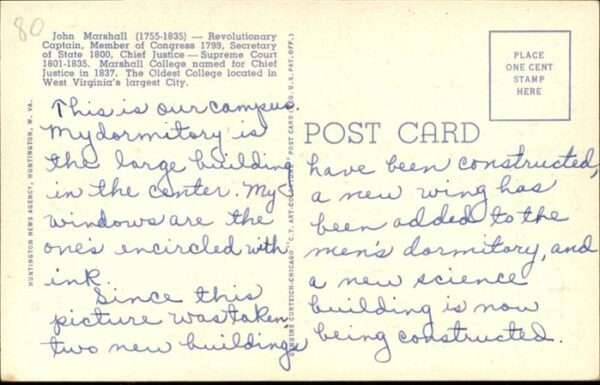 80
John Marshall (1755-1835) — Revolutionary
Captain, Member of Congress 1799, Secretary
of State 1800, Chief Justice — Supreme Court
1801-1835. Marshall College named for Chief
Justice in 1837. The Oldest College located in
West Virginia's largest City.
This is our campus.
My dormitory is
the large building
in the center. My
windows are the
ones encircled with
ink.
Since this
picture was taken,
two new buildings
HUNTINGTON NEWS AGENCY, HUNTINGTON, W. VA.
GENUINE CURTEICH-CHICAGO "C.T. ART-COLORTONE" POST CARD (REG. U.S. PAT. OFF.)
PLACE
ONE CENT
STAMP
HERE
POST CARD
have been constructed,
a new wing has
been added to the
men's dormitory, and
a new science
building is now
being constructed.